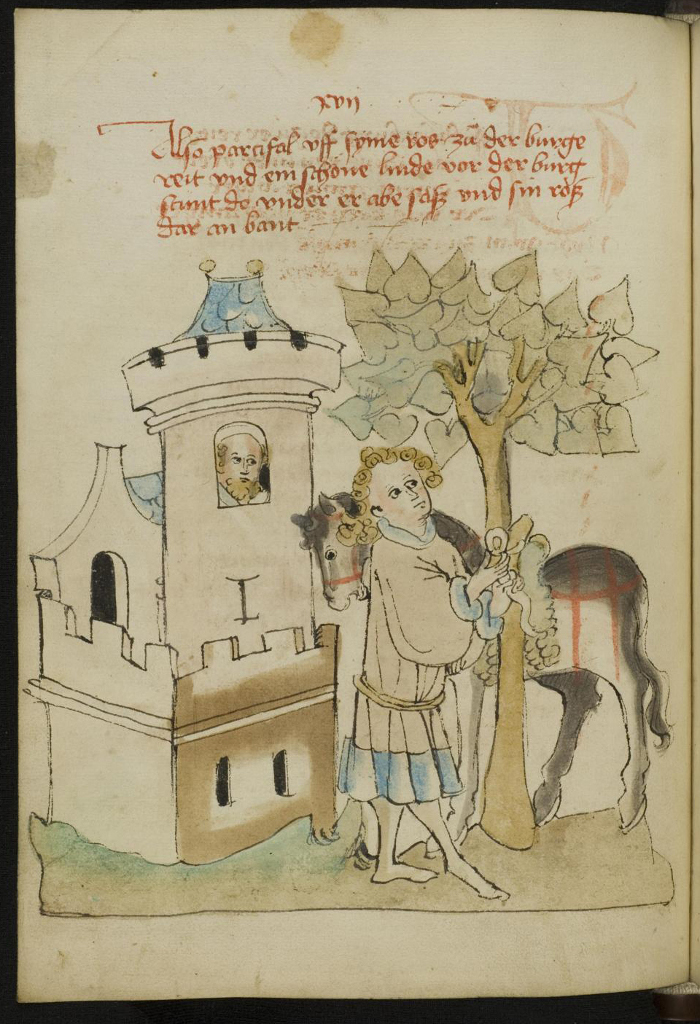 xvij
Also parcifal vff syme ros zu der burge
reit vnd ein schone linde vor der burg
stunt do vnder er abe sasz vnd sin rosz
dar an bant